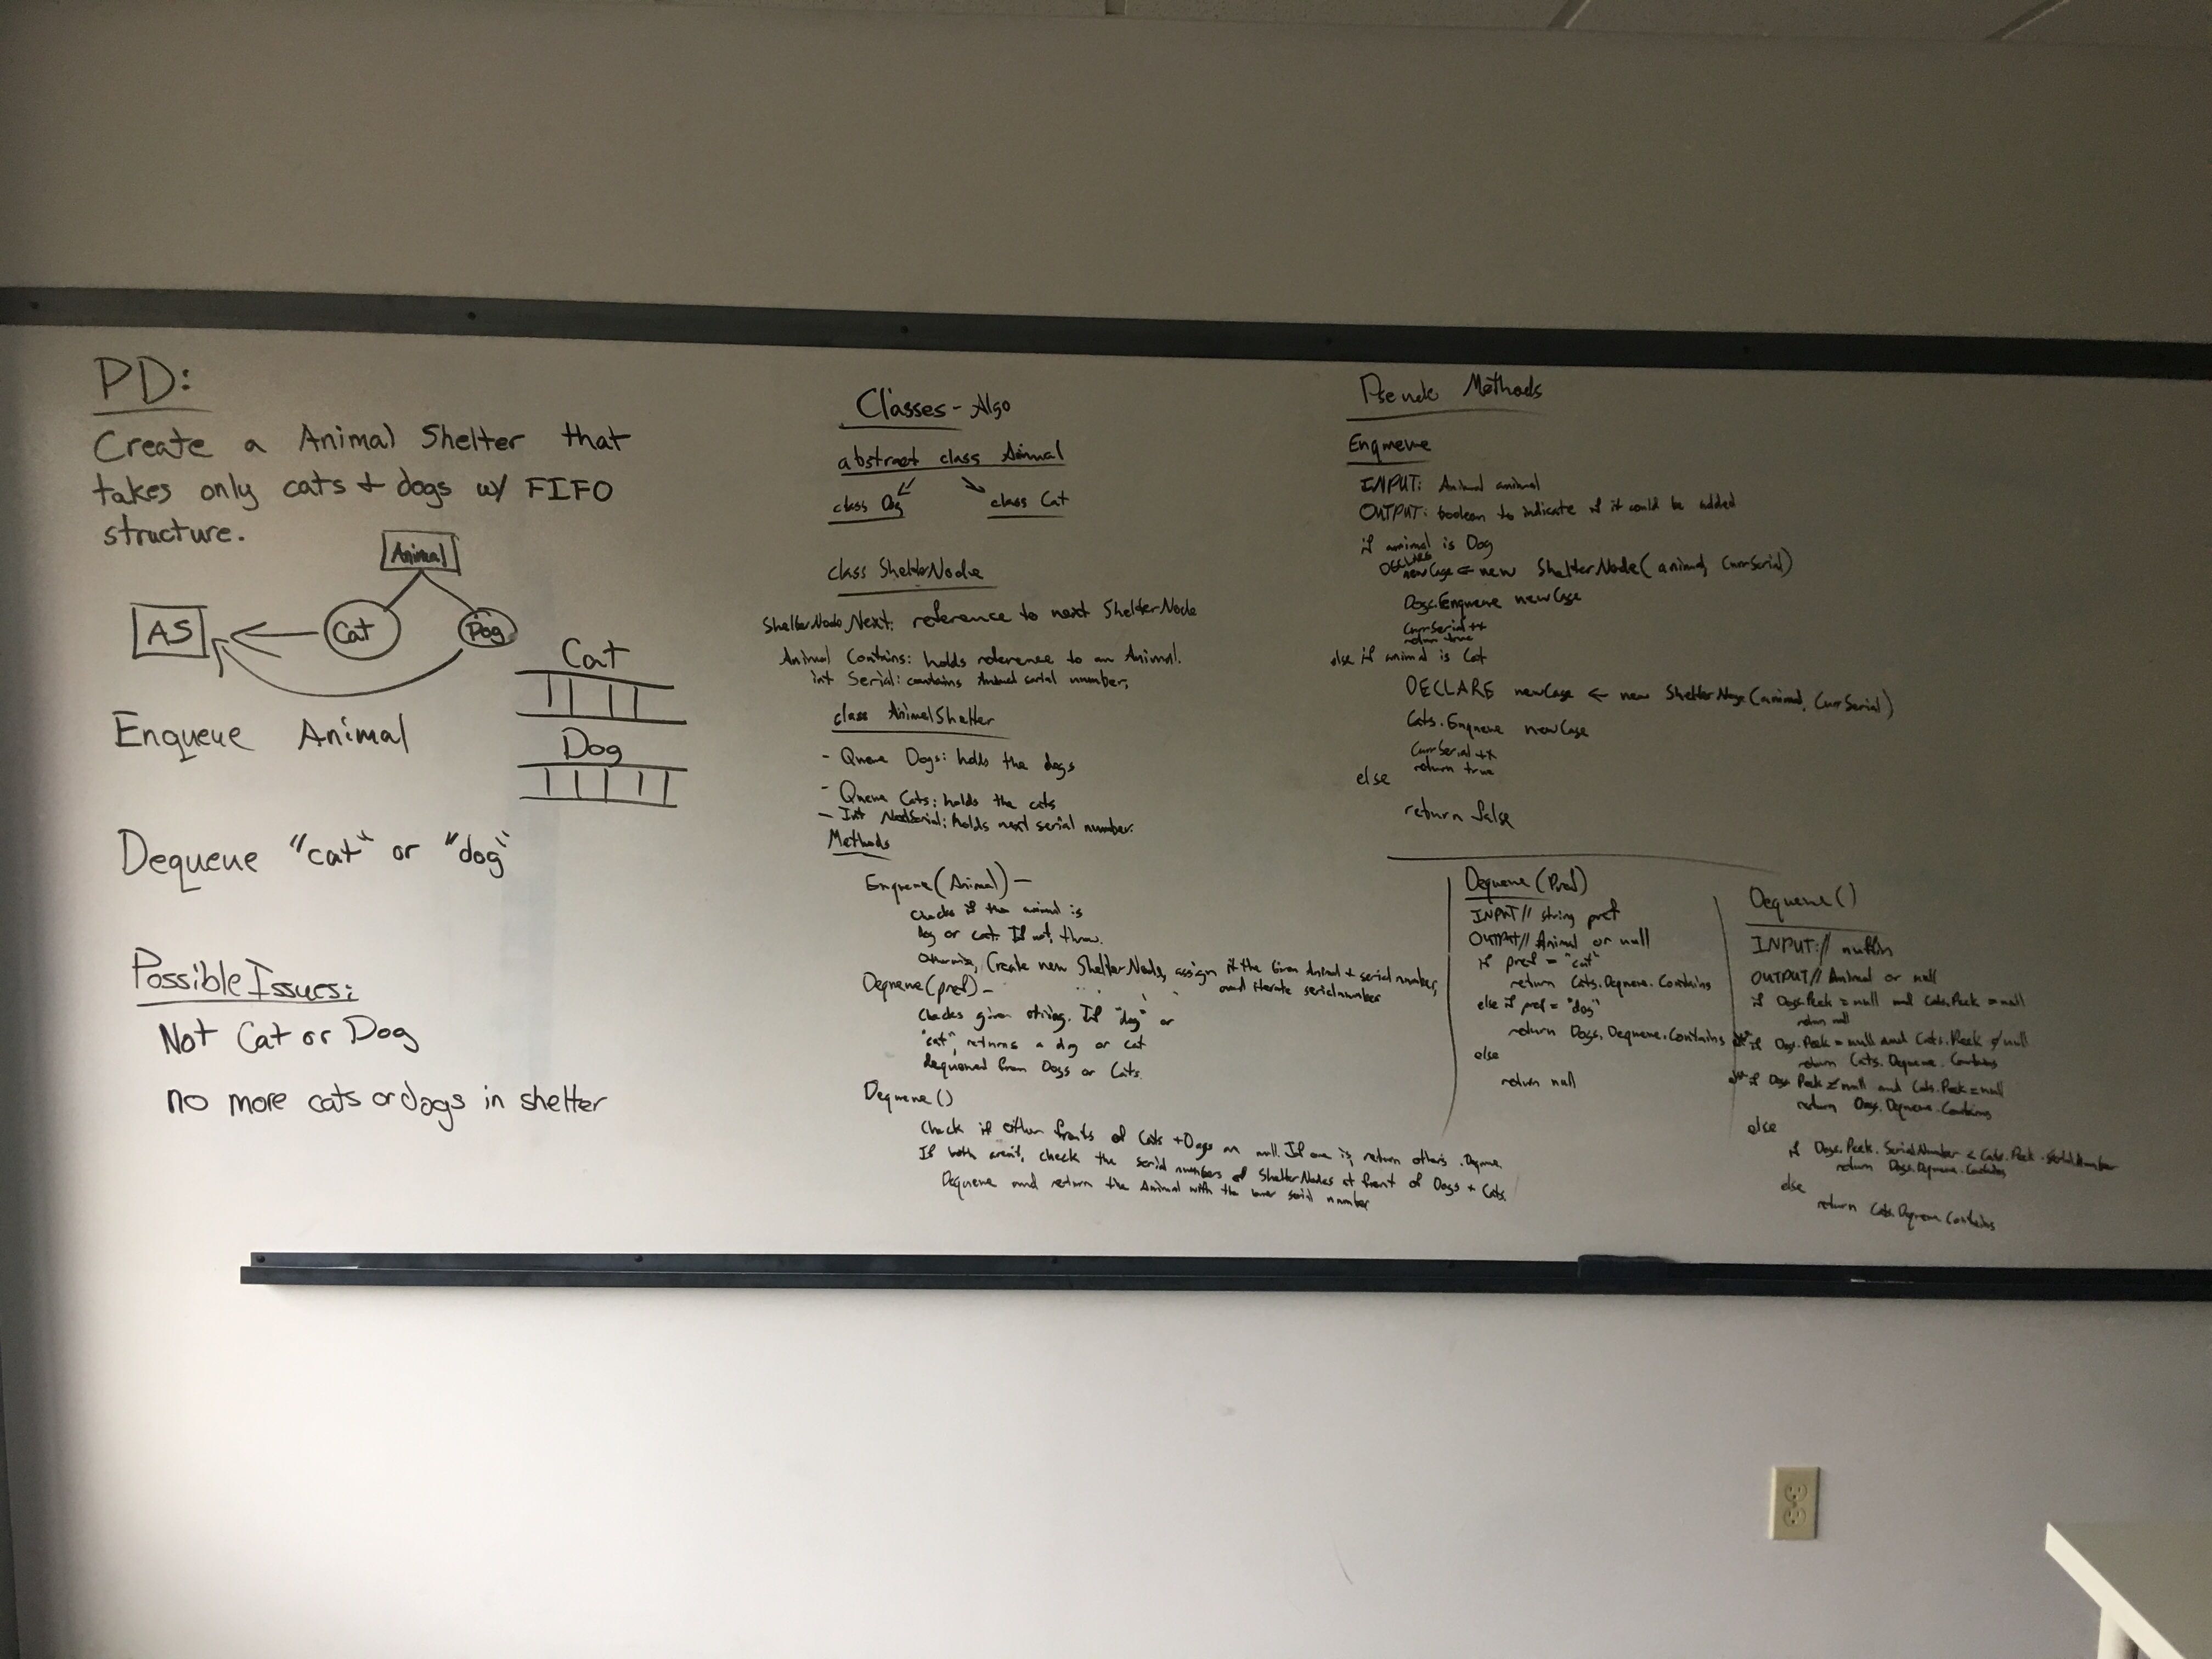 PD:
Create a Animal Shelter that
takes only cats + dogs w/ FIFO
structure.
Animal
AS
Cat
Dog
Cat
Enqueue Animal
Dog
Dequeue "cat" or "dog"
Possible Issues:
Not Cat or Dog
no more cats or dogs in shelter
Classes - Algo
abstract class Animal
class Dog
class Cat
class ShelterNode
ShelterNode Next: reference to next ShelterNode
Animal Contains: holds reference to an Animal.
int Serial: contains Animal serial number;
class AnimalShelter
- Queue Dogs: holds the dogs
- Queue Cats: holds the cats
- Int NextSerial: holds next serial number.
Methods
Enqueue(Animal) -
Checks if the animal is
Dog or cat. If not, throw.
Otherwise, Create new ShelterNode, assign it the Given Animal + serial number,
and iterate serial number
Dequeue(pref) -
Checks given string. If "dog" or
"cat", returns a dog or cat
dequeued from Dogs or Cats.
Dequeue()
Check if either fronts of Cats + Dogs are null. If one is, return other's .Dequeue
If both aren't, check the serial numbers of ShelterNodes at front of Dogs + Cats.
Dequeue and return the Animal with the lower serial number
Pseudo Methods
Enqueue
INPUT: Animal animal
OUTPUT: boolean to indicate if it could be added
if animal is Dog
DECLARE
newCage ← new ShelterNode(animal, CurrSerial)
Dogs.Enqueue newCage
CurrSerial++
return true
else if animal is Cat
DECLARE newCage ← new ShelterNode(animal, CurrSerial)
Cats.Enqueue newCage
CurrSerial++
return true
else
return false
Dequeue(Pref)
INPUT// string pref
OUTPUT// Animal or null
if pref = "cat"
return Cats.Dequeue.Contains
else if pref = "dog"
return Dogs.Dequeue.Contains
else
return null
Dequeue()
INPUT:// nuffin
OUTPUT// Animal or null
if Dogs.Peek = null and Cats.Peek = null
return null
else if Dogs.Peek = null and Cats.Peek ≠ null
return Cats.Dequeue.Contains
else if Dogs.Peek ≠ null and Cats.Peek = null
return Dogs.Dequeue.Contains
else
if Dogs.Peek.SerialNumber < Cats.Peek.SerialNumber
return Dogs.Dequeue.Contains
else
return Cats.Dequeue.Contains